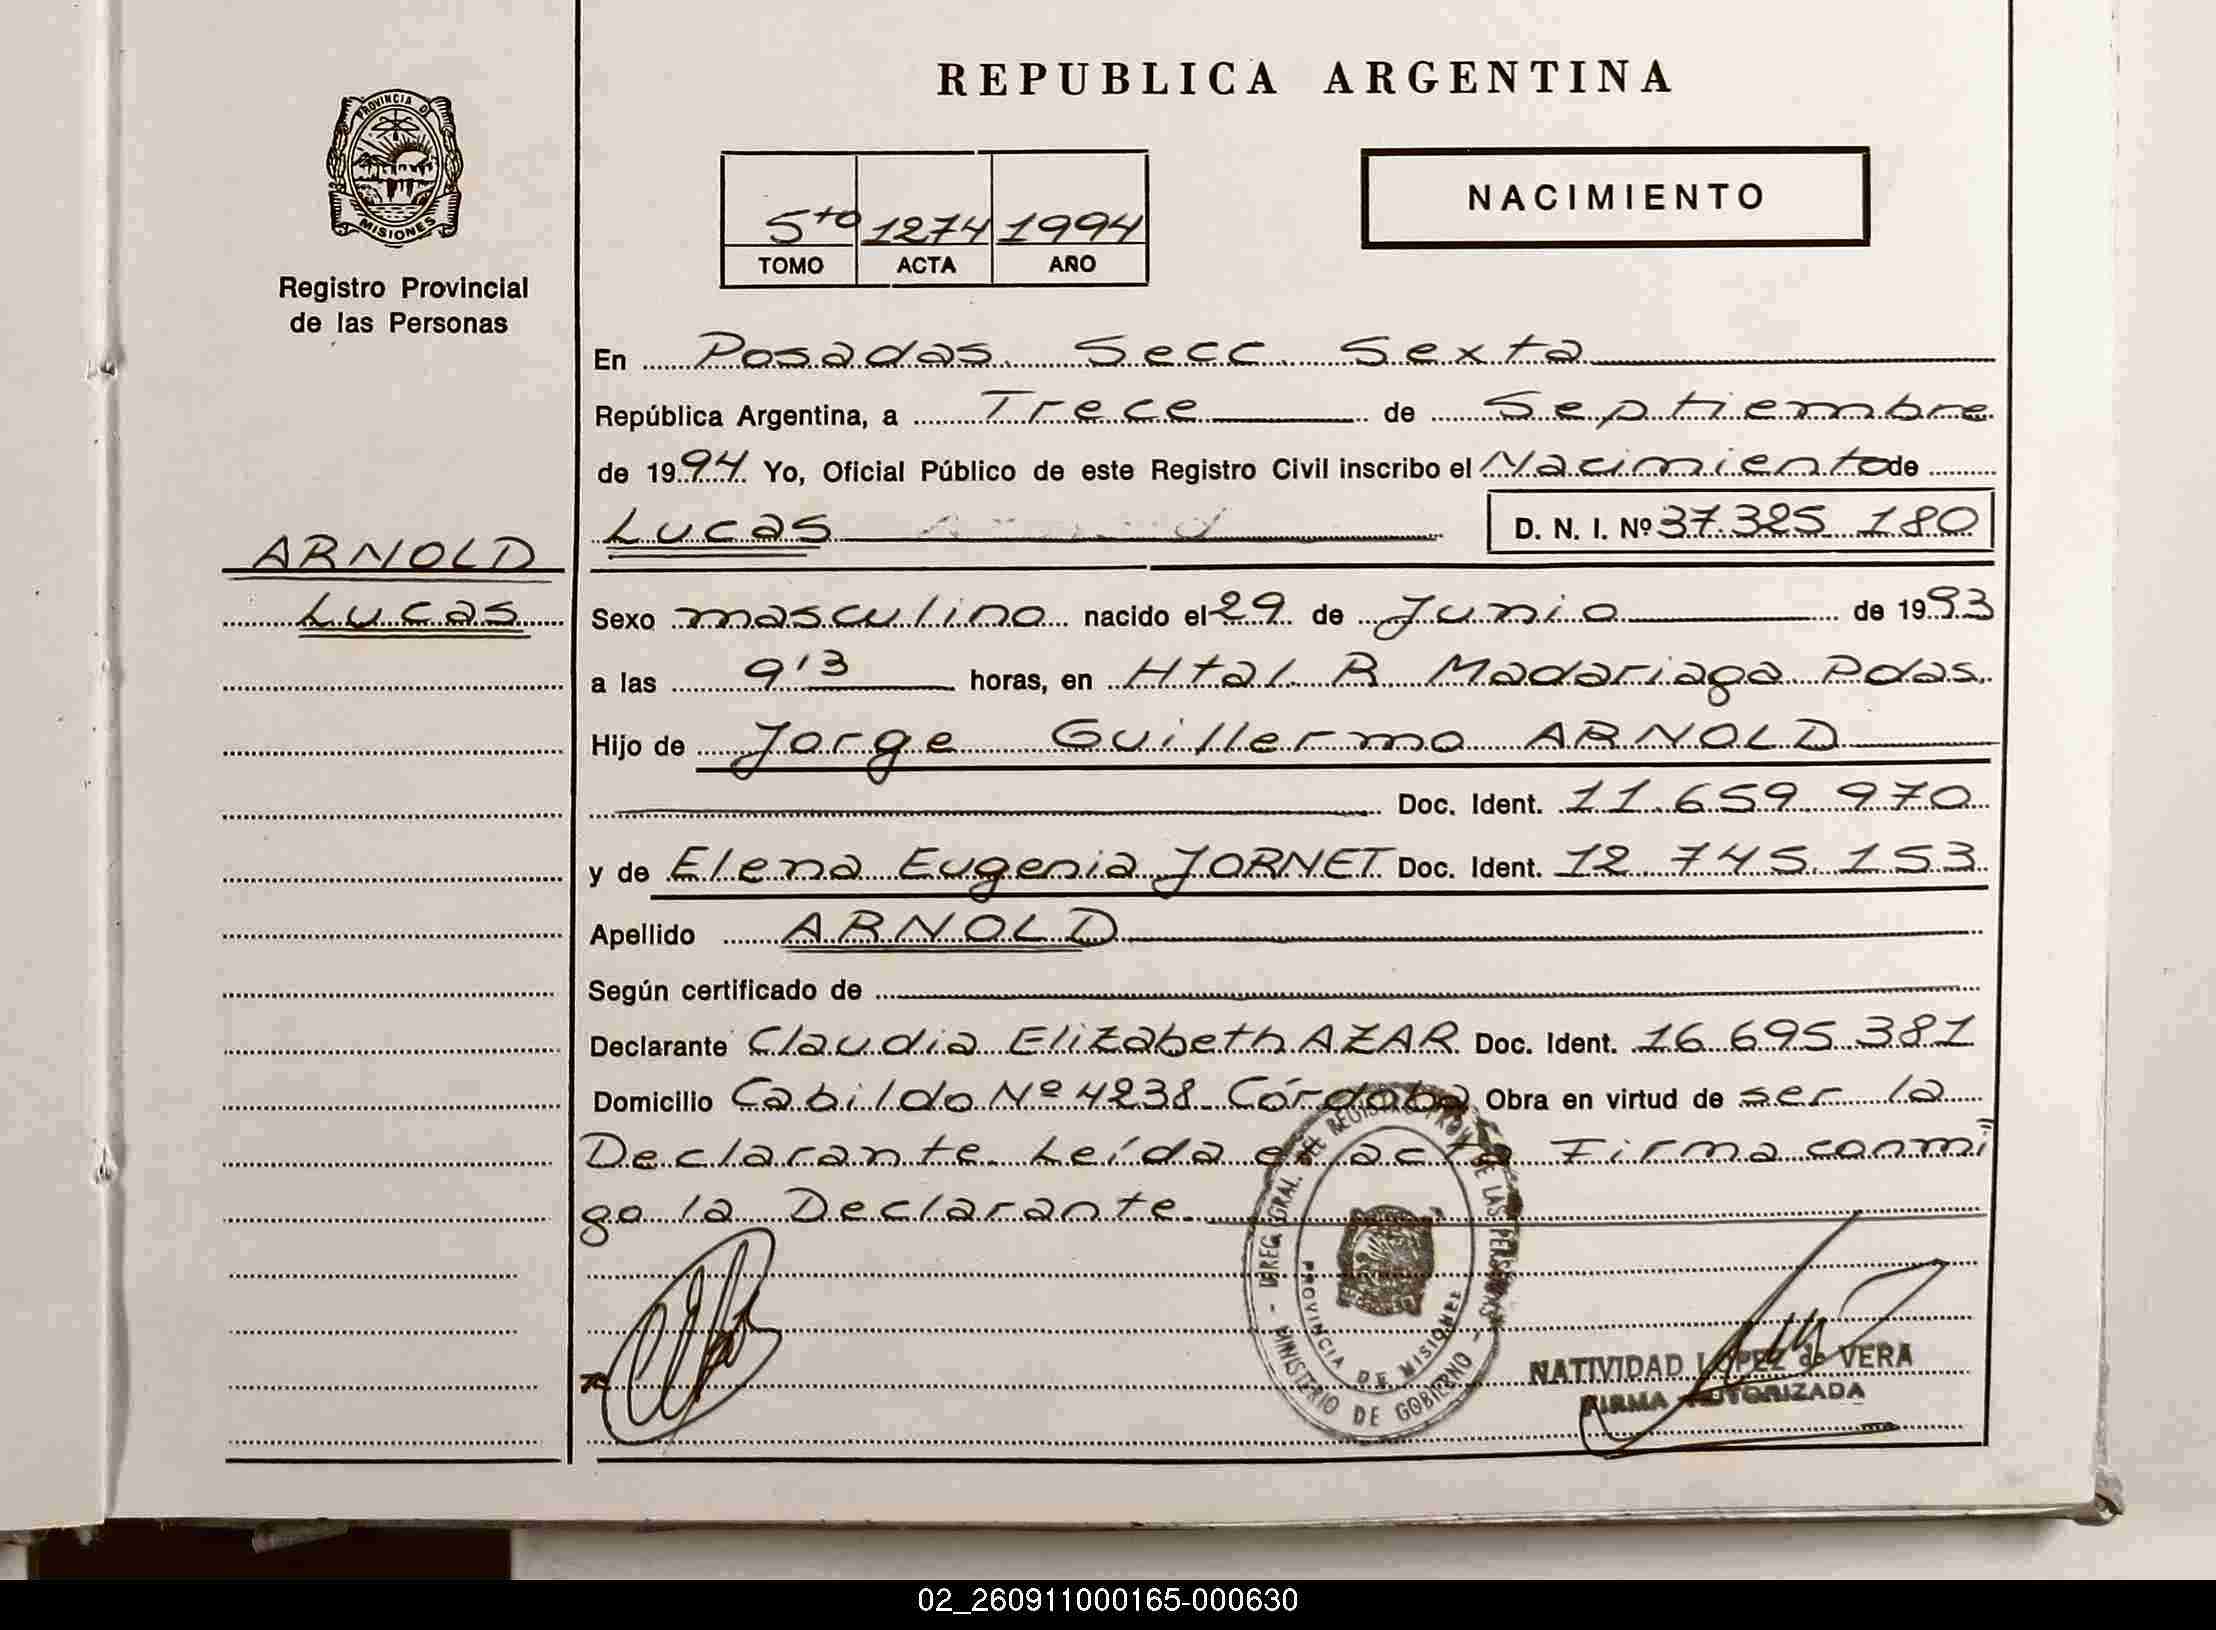 REPUBLICA ARGENTINA
PROVINCIA DE
MISIONES
Registro Provincial
de las Personas
5to 1274 1994
TOMO ACTA AÑO
NACIMIENTO
En Posadas Secc Sexta
República Argentina, a Trece de Septiembre
de 1994 Yo, Oficial Público de este Registro Civil inscribo el Nacimiento de
Lucas D. N. I. Nº 37.325.180
ARNOLD
Lucas
Sexo masculino nacido el 29 de Junio de 1993
a las 9'3 horas, en Htal. R Madariaga Pdas.
Hijo de Jorge Guillermo ARNOLD
Doc. Ident. 11.659.970
y de Elena Eugenia JORNET Doc. Ident. 12.745.153
Apellido ARNOLD
Según certificado de
Declarante Claudia Elizabeth AZAR Doc. Ident. 16.695.381
Domicilio Cabildo Nº 4238 Córdoba Obra en virtud de ser la
Declarante. Leída el acta Firma conmi
go la Declarante.
DIREC. GRAL. DEL REGISTRO PROV. DE LAS PERSONAS
PROVINCIA DE MISIONES
- MINISTERIO DE GOBIERNO -
NATIVIDAD LOPEZ de VERA
FIRMA AUTORIZADA
02_260911000165-000630